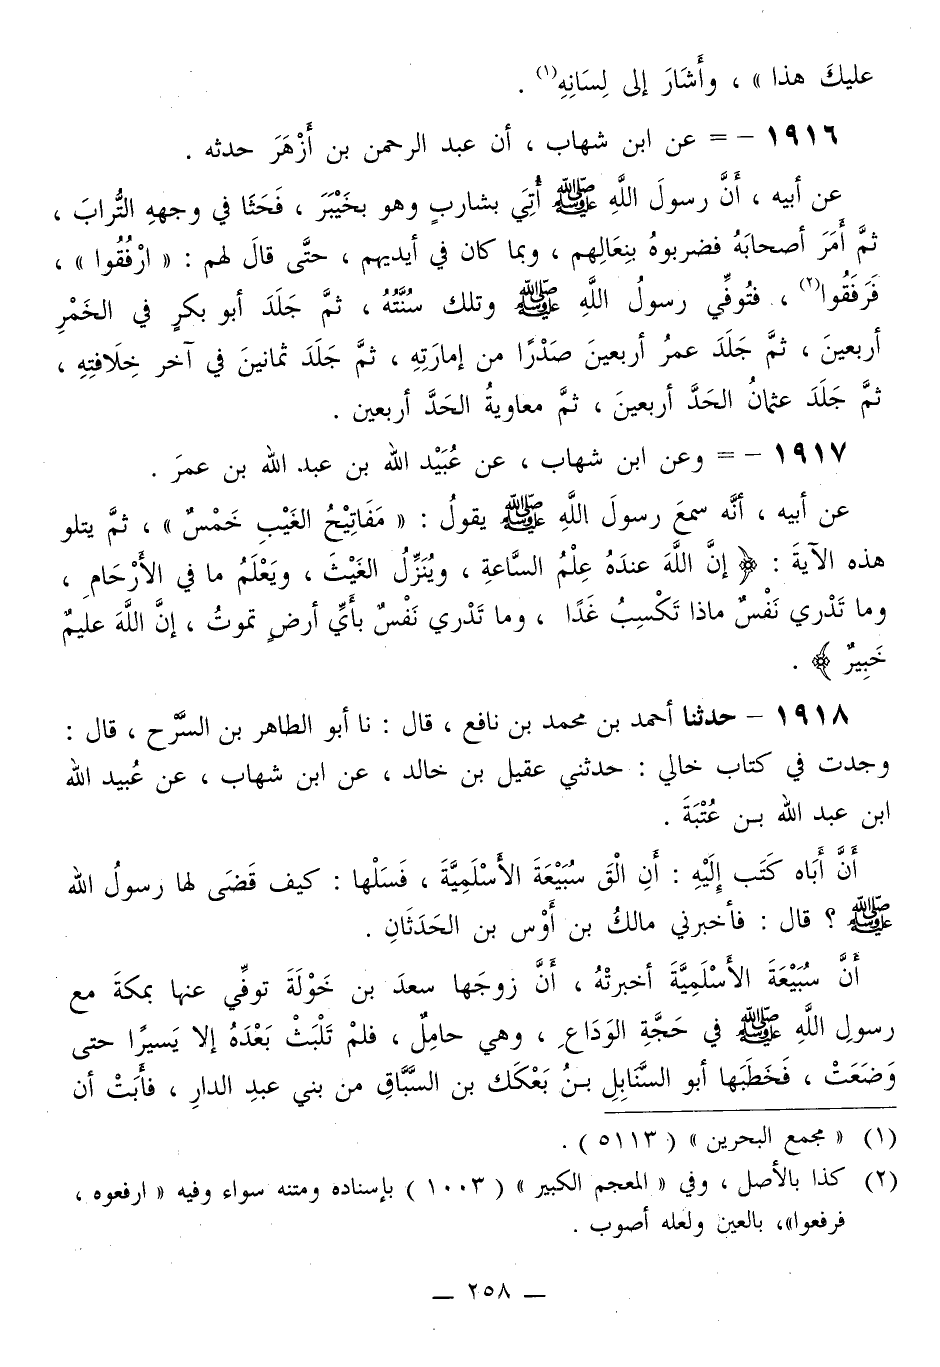 عليكَ هذا » ، وأَشَارَ إلى لِسَانِهِ(١) .
١٩١٦ - = عن ابن شهاب ، أن عبد الرحمن بن أَزْهَرَ حدثه .
عن أبيه ، أَنَّ رسولَ اللَّهِ ﷺ أُتِيَ بشاربٍ وهو بخَيْبَرَ ، فَحَثَا في وجهِهِ التُّرابَ ،
ثمَّ أَمَرَ أصحابَهُ فضربوهُ بنِعَالِهم ، وبما كان في أيديهم ، حتَّى قالَ لهم : « ارْفُقُوا » ،
فَرَفَقُوا(٢) ، فتُوفِّي رسولُ اللَّهِ ﷺ وتلك سُنَّتُهُ ، ثمَّ جَلَدَ أبو بكرٍ في الخَمْرِ
أربعينَ ، ثمَّ جَلَدَ عمرُ أربعينَ صَدْرًا من إمارَتِهِ ، ثمَّ جَلَدَ ثمانينَ في آخر خِلَافتِهِ ،
ثمَّ جَلَدَ عثمانُ الحَدَّ أربعينَ ، ثمَّ معاويةُ الحَدَّ أربعين .
١٩١٧ - = وعن ابن شهاب ، عن عُبَيْد الله بن عبد الله بن عمرَ .
عن أبيه ، أنَّه سمعَ رسولَ اللَّهِ ﷺ يقولُ : « مَفَاتِيْحُ الغَيْبِ خَمْسٌ » ، ثمَّ يتلو
هذه الآيةَ : ﴿ إنَّ اللَّهَ عندَهُ عِلْمُ السَّاعةِ ، ويُنَزِّلُ الغَيْثَ ، ويَعْلَمُ ما في الأَرْحَامِ ،
وما تَدْري نَفْسٌ ماذا تَكْسِبُ غَدًا ، وما تَدْري نَفْسٌ بأَيِّ أرضٍ تموتُ ، إنَّ اللَّهَ عليمٌ
خَبِيرٌ ﴾ .
١٩١٨ - حدثنا أحمد بن محمد بن نافع ، قال : نا أبو الطاهر بن السَّرْح ، قال :
وجدت في كتاب خالي : حدثني عقيل بن خالد ، عن ابن شهاب ، عن عُبيد الله
ابن عبد الله بـن عُتْبَةَ .
أَنَّ أَبَاه كَتَب إِلَيْهِ : أَنِ الْقَ سُبَيْعَةَ الأَسْلَمِيَّةَ ، فَسَلْها : كيف قَضَى لها رسولُ الله
ﷺ ؟ قال : فأخبرني مالكُ بن أَوْس بن الحَدَثَانِ .
أَنَّ سُبَيْعَةَ الأَسْلَمِيَّةَ أخبرتْهُ ، أَنَّ زوجَها سعدَ بن خَوْلَةَ توفِّي عنها بمكةَ مع
رسولِ اللَّهِ ﷺ في حَجَّةِ الوَدَاعِ ، وهي حامِلٌ ، فلمْ تَلْبَثْ بَعْدَهُ إلا يَسيرًا حتى
وَضَعَتْ ، فَخَطَبَها أبو السَّنَابِلِ بـنُ بَعْكَك بن السَّبَّاقِ من بني عبدِ الدارِ ، فأَبَتْ أن
(١) « مجمع البحرين » ( ٥١١٣ ) .
(٢) كذا بالأصل ، وفي « المعجم الكبير » ( ١٠٠٣ ) بإسناده ومتنه سواء وفيه « ارفعوه ،
فرفعوا»، بالعين ولعله أصوب .
— ٢٥٨ —